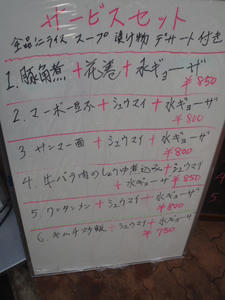 サービスセット
全品にライス スープ 漬け物 デザート付き
1. 豚角煮+花巻+水ギョーザ
¥850
2. マーボー豆腐+シュウマイ+水ギョーザ
¥800
3. サンマー面+シュウマイ+水ギョーザ
¥800
4. 牛バラ肉のしょうゆ煮込み+シュウマイ
+水ギョーザ ¥850
5. ワンタンメン+シュウマイ+水ギョーザ
¥800
6. キムチ炒飯+シュウマイ+水ギョーザ
¥750